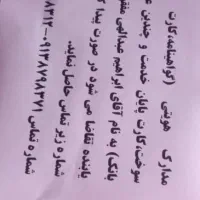 مدارک هویتی (گواهینامه،کارت
سوخت،کارت پایان خدمت و چندین ع
بانک) به نام آقای ابراهیم عبدالهی مفقو
یابنده تقاضا می شود در صورت پیدا ک
شماره زیر تماس حاصل نماید.
شماره تماس ۰۹۱۳۸۷۹۸۳۷۱-۸۳۱۲